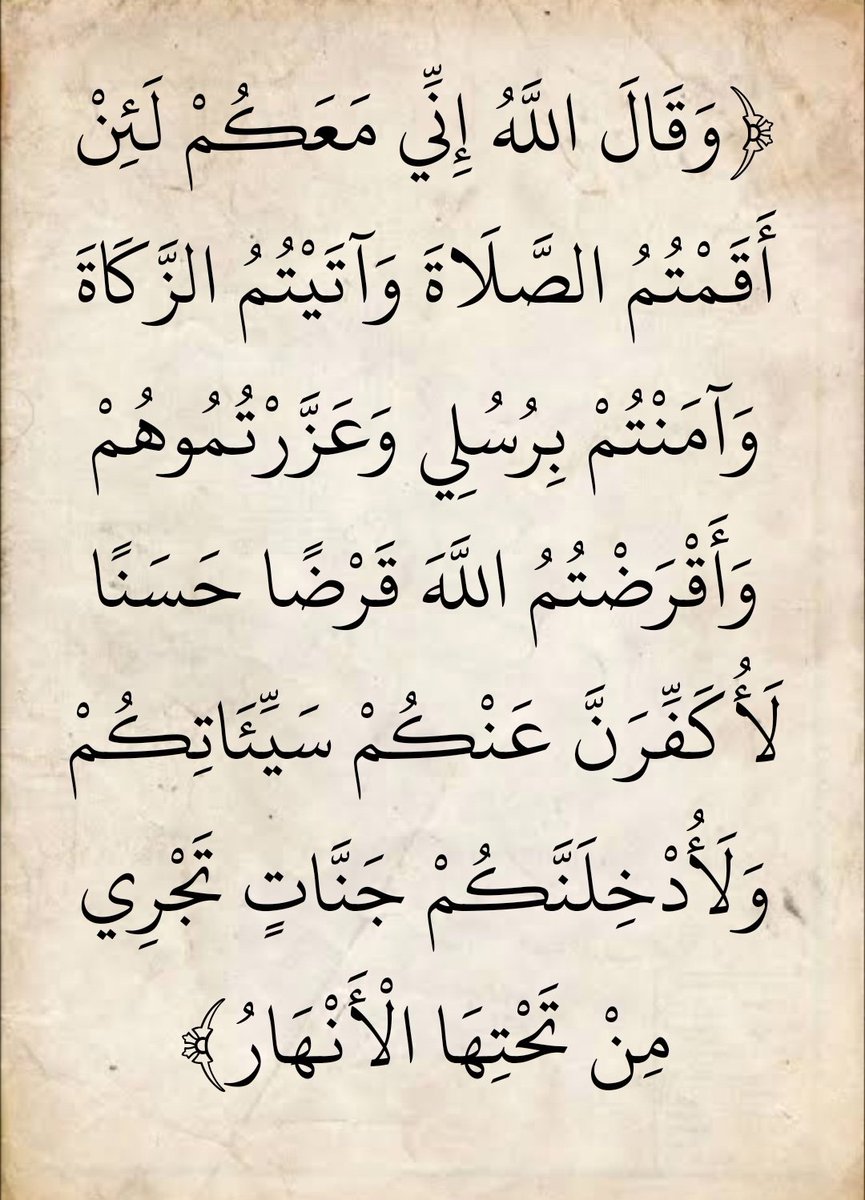 ﴿وَقَالَ اللَّهُ إِنِّي مَعَكُمْ لَئِنْ
أَقَمْتُمُ الصَّلَاةَ وَآتَيْتُمُ الزَّكَاةَ
وَآمَنْتُمْ بِرُسُلِي وَعَزَّرْتُمُوهُمْ
وَأَقْرَضْتُمُ اللَّهَ قَرْضًا حَسَنًا
لَأُكَفِّرَنَّ عَنْكُمْ سَيِّئَاتِكُمْ
وَلَأُدْخِلَنَّكُمْ جَنَّاتٍ تَجْرِي
مِنْ تَحْتِهَا الْأَنْهَارُ﴾